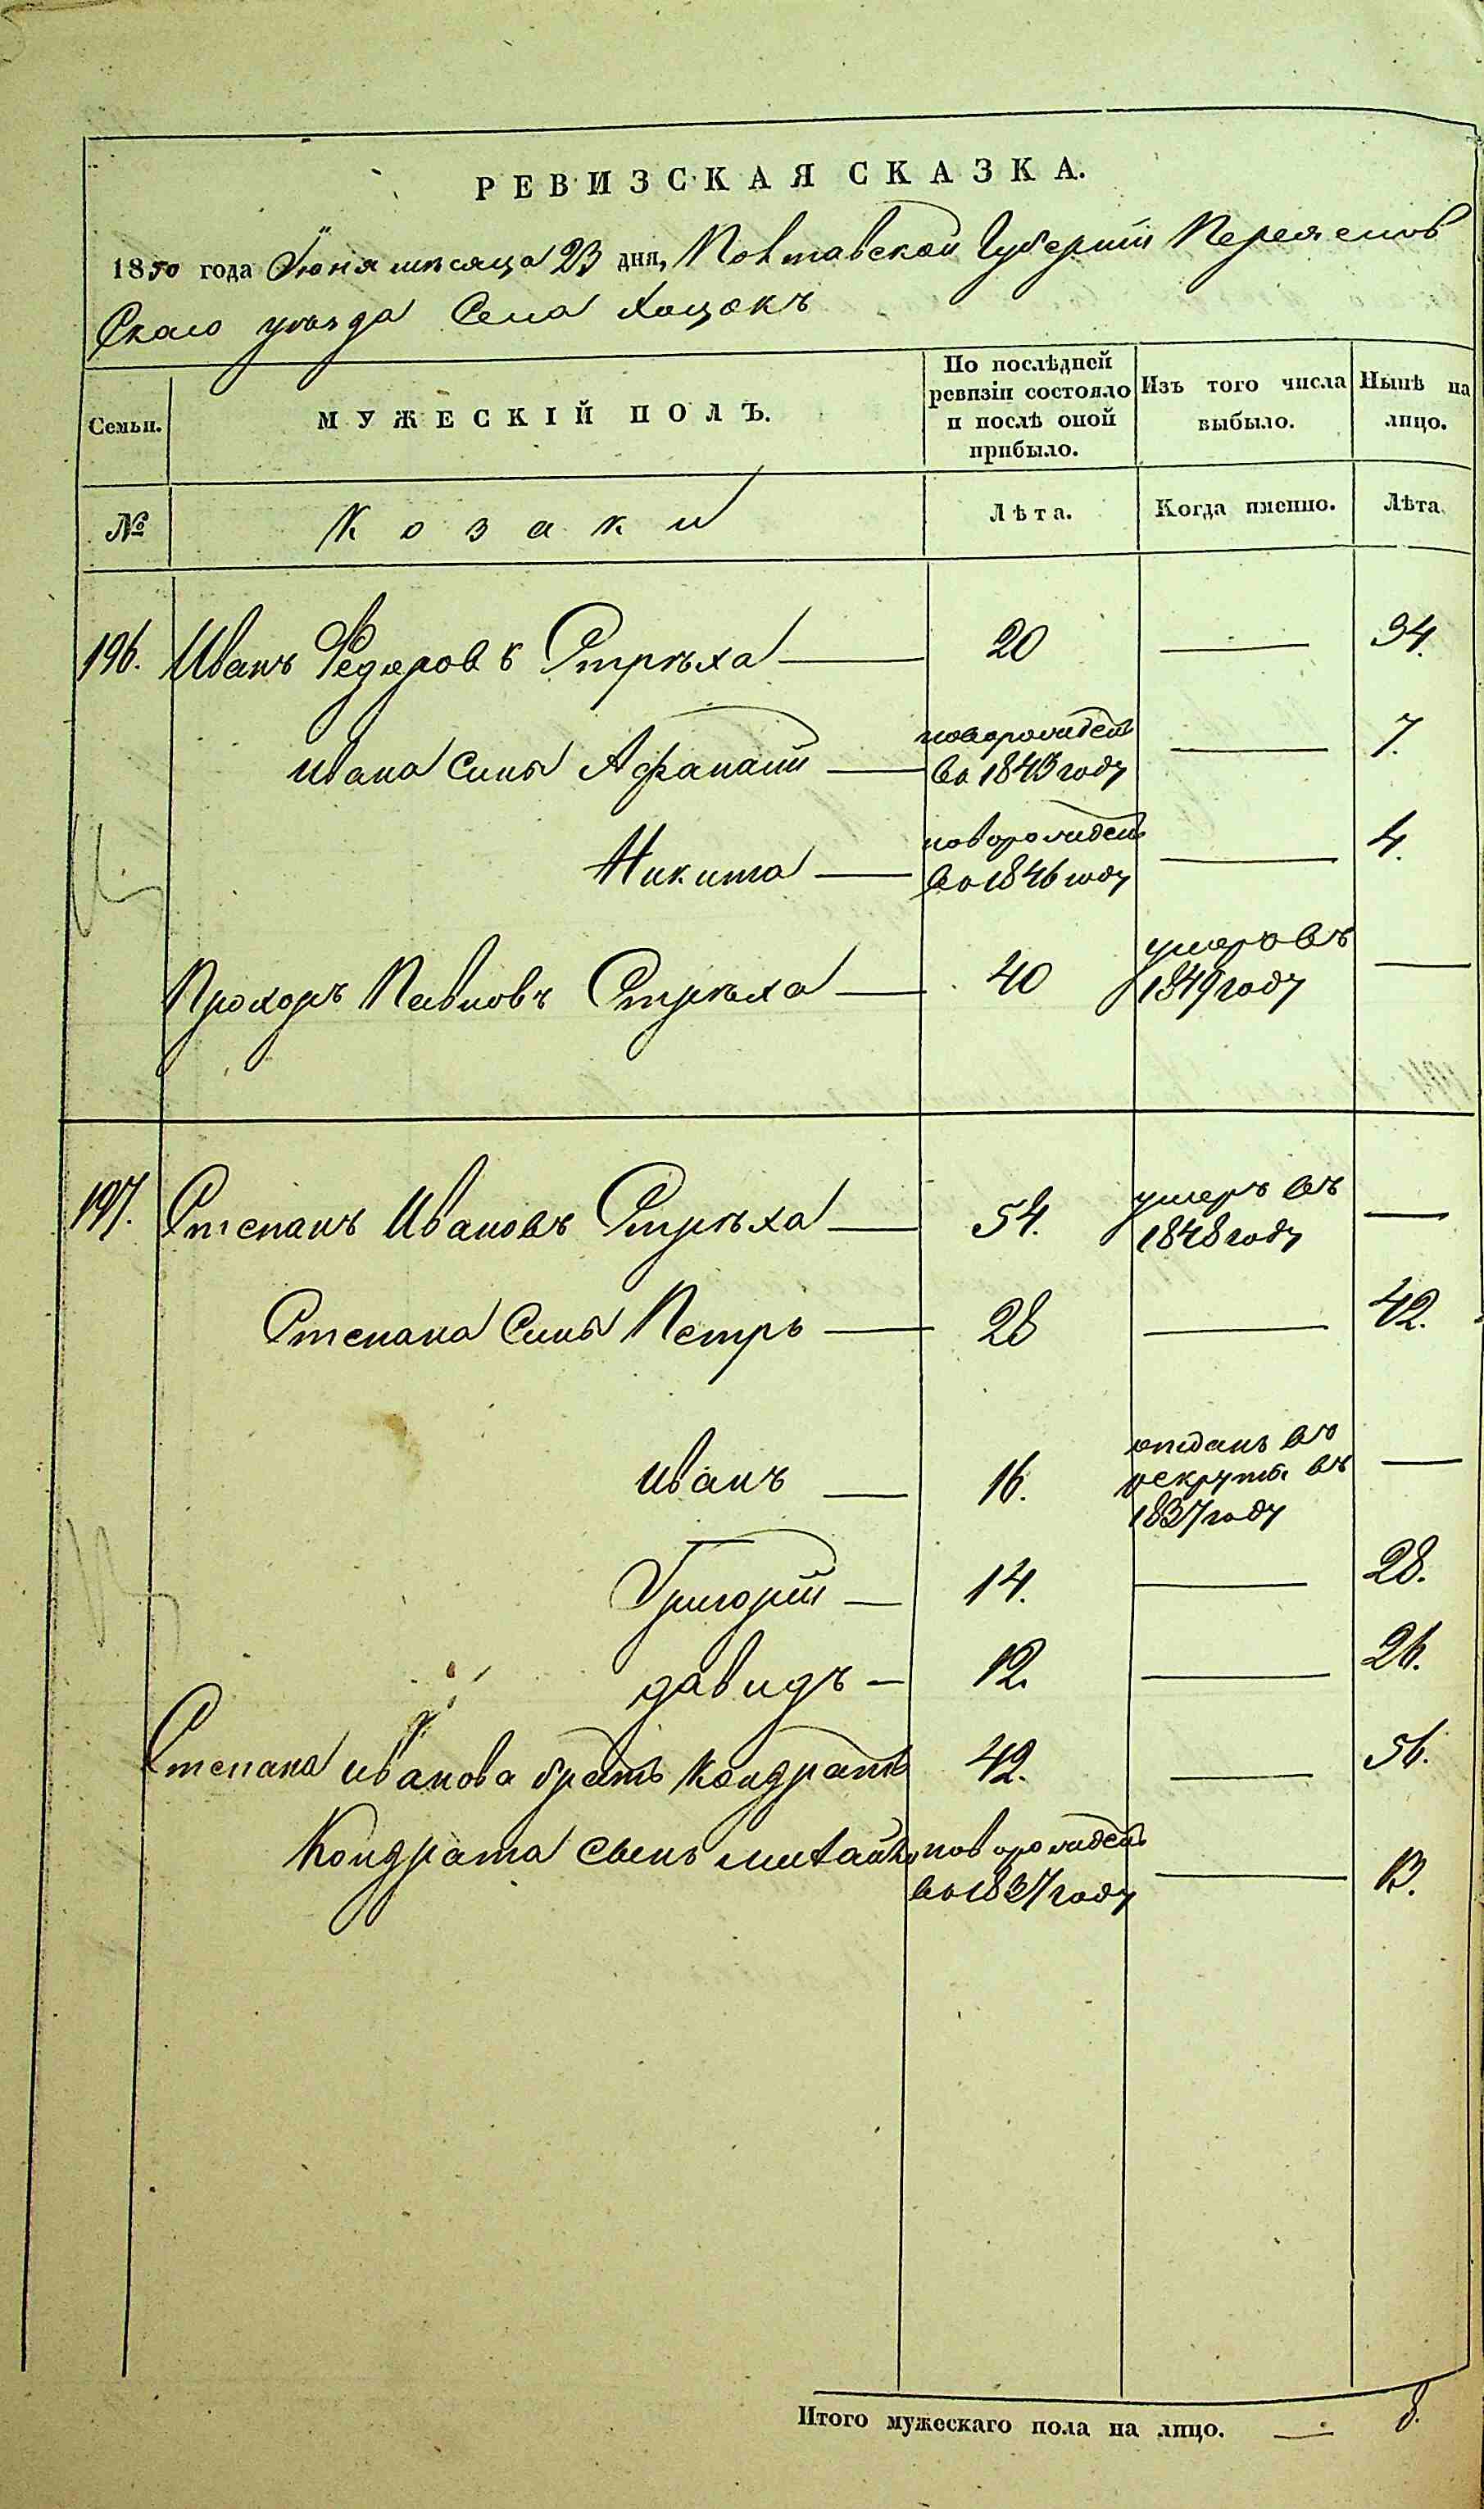 РЕВИЗСКАЯ СКАЗКА.
1850 года Іюня мѣсяца 23 дня, Полтавской Губерніи Переяслов
Скаго уѣзда Села Хоцокъ
Семьи.
МУЖЕСКІЙ ПОЛЪ.
По послѣдней ревизіи состояло и послѣ оной прибыло.
Изъ того числа выбыло.
Нынѣ на лицо.
№ Козаки Лѣта. Когда именно. Лѣта.
196. Иванъ Федоровъ Стрѣха — 20 — 34.
Ивана Сынъ Афанасій — новорожденъ во 1843 году — 7.
Никита — новорожденъ во 1846 году — 4.
Прохоръ Павловъ Стрѣха — 40 умеръ въ 1849 году —
197. Степанъ Ивановъ Стрѣха — 54. умеръ въ 1848 году —
Степана Сынъ Петръ — 28 — 42.
Иванъ — 16. отданъ во рекруты въ 1837 году —
Григорій — 14. — 28.
Давидъ — 12. — 26.
Степана Иванова братъ Кондратъ 42. — 56.
Кондрата сынъ Михайло новорожденъ во 1837 году — 13.
Итого мужескаго пола на лицо. — 8.